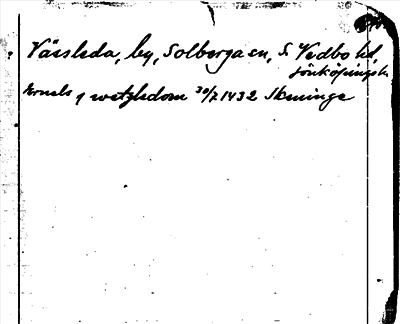 Vässleda, by, Solberga sn, S. Vedbo hd,
Jönköpings l.
Kernels j wetzledom 30/7 1432 Skeninge